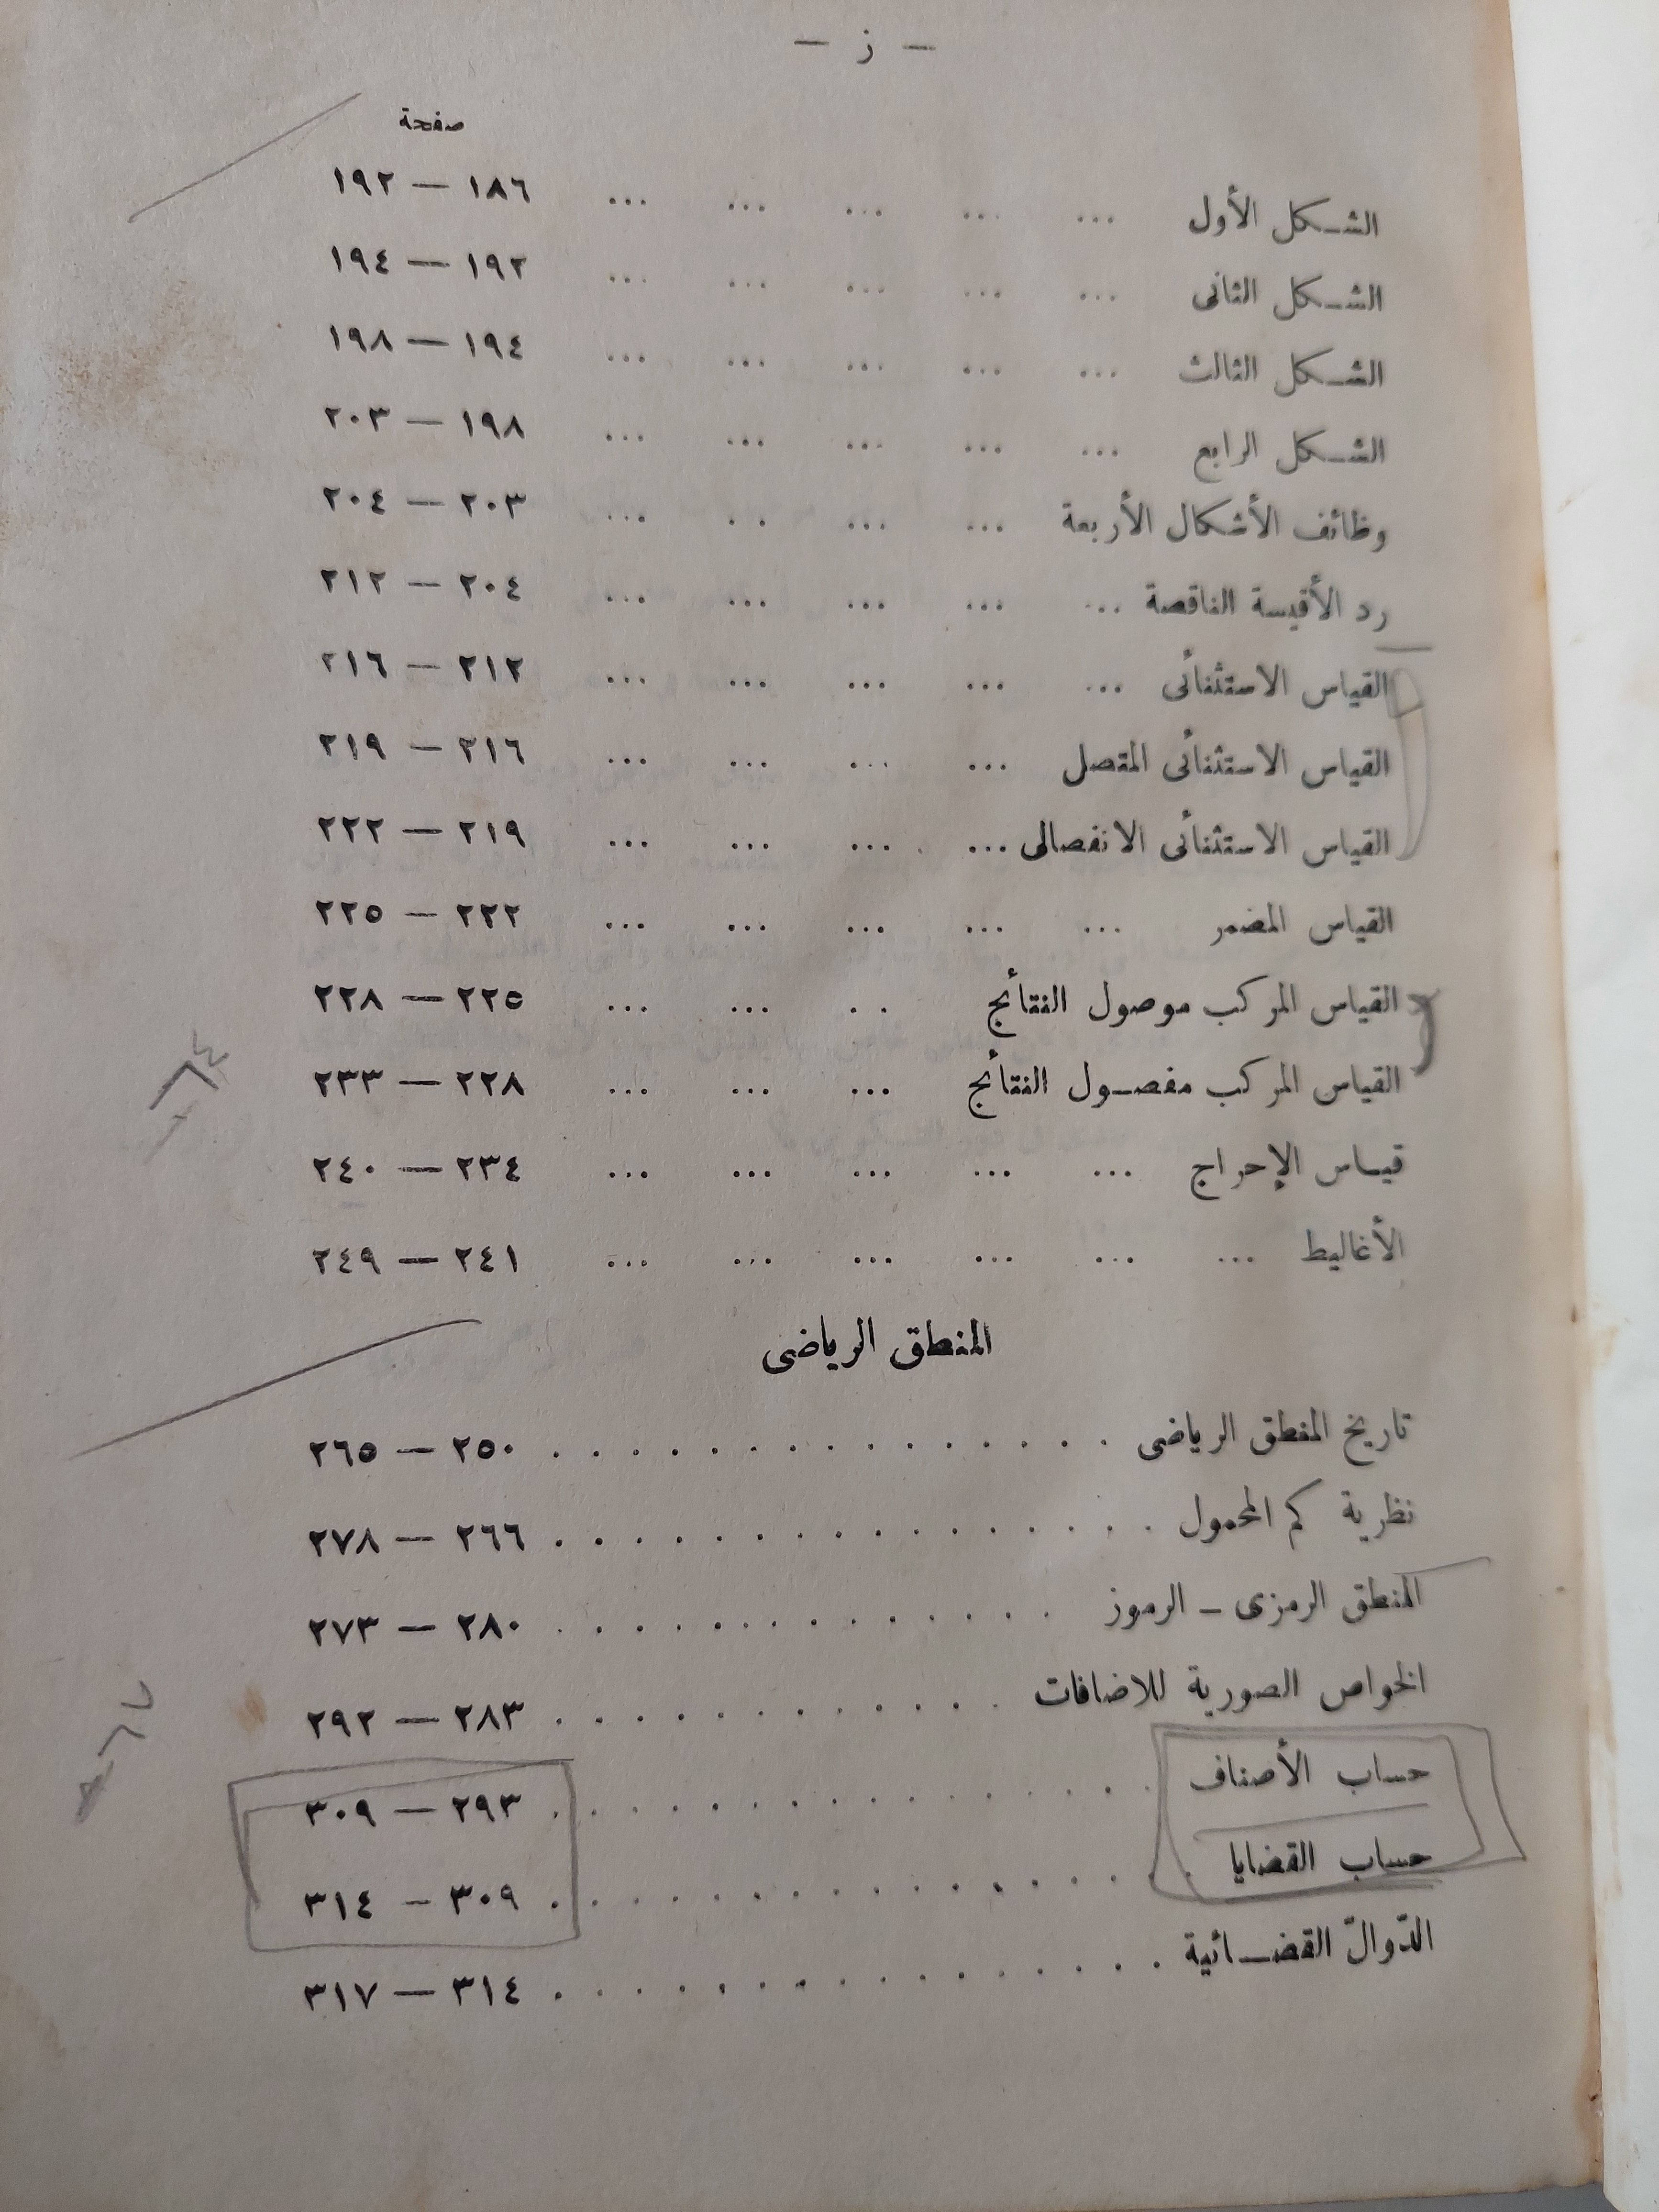 — ز —
صفحة
الشكل الأول ... ... ... ... ... ١٨٦ — ١٩٢
الشكل الثانى ... ... ... ... ... ١٩٢ — ١٩٤
الشكل الثالث ... ... ... ... ... ١٩٤ — ١٩٨
الشكل الرابع ... ... ... ... ... ١٩٨ — ٢٠٣
وظائف الأشكال الأربعة ... ... .. ... ٢٠٣ — ٢٠٤
رد الأقيسة الناقصة ... ... ... ... ... ٢٠٤ — ٢١٢
القياس الاستثنائى ... ... ... ... ... ٢١٢ — ٢١٦
القياس الاستثنائى المتصل ... ... ... ... ٢١٦ — ٢١٩
القياس الاستثنائى الانفصالى ... ... ... ... ٢١٩ — ٢٢٢
القياس المضمر ... ... ... ... ... ٢٢٢ — ٢٢٥
القياس المركب موصول النتائج .. ... ... ٢٢٥ — ٢٢٨
القياس المركب مفصول النتائج ... ... ... ٢٢٨ — ٢٣٣
قياس الإحراج ... ... ... ... ... ٢٣٤ — ٢٤٠
الأغاليط ... ... ... ... ... ... ٢٤١ — ٢٤٩
المنطق الرياضى
تاريخ المنطق الرياضى . . . . . . . . . . . . . . . ٢٥٠ — ٢٦٥
نظرية كم المحمول . . . . . . . . . . . . . . . . ٢٦٦ — ٢٧٨
المنطق الرمزى – الرموز . . . . . . . . . . . . . ٢٨٠ — ٢٧٣
الخواص الصورية للاضافات . . . . . . . . . . . . ٢٨٣ — ٢٩٢
حساب الأصناف . . . . . . . . . . . . . . . ٢٩٣ — ٣٠٩
حساب القضايا . . . . . . . . . . . . . . . . ٣٠٩ – ٣١٤
الدّوالّ القضائية . . . . . . . . . . . . . . . . ٣١٤ — ٣١٧